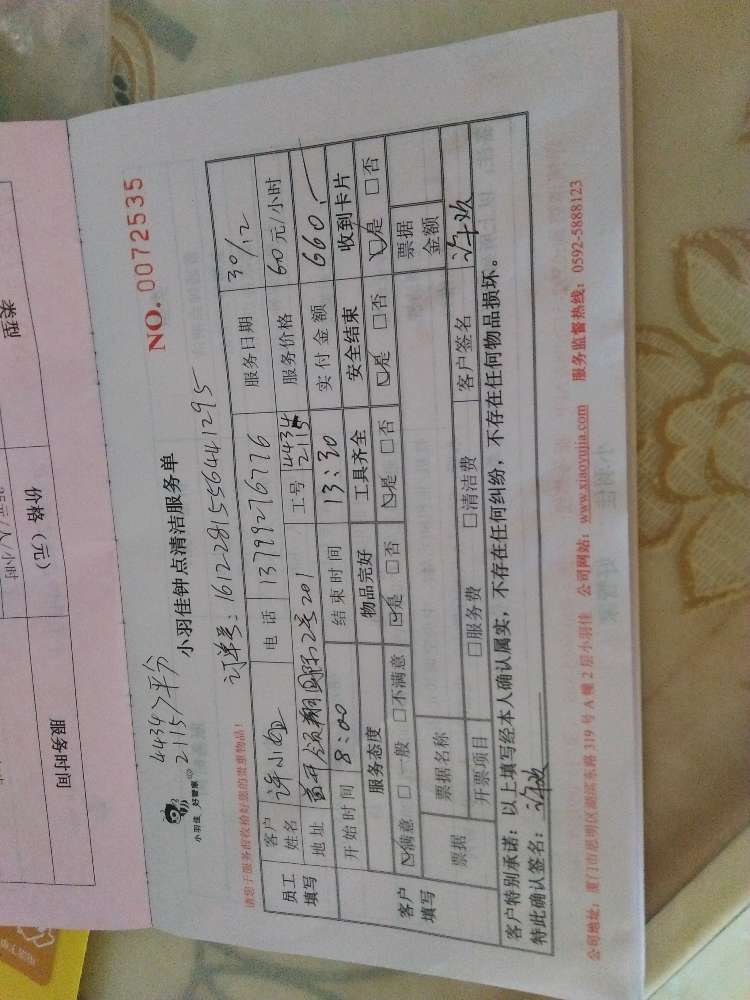 类型
价格（元）
服务时间
NO. 0072535
4434
2115 平分
小羽佳 好管家
小羽佳钟点清洁服务单
订单号: 161228155644 1295
请您于服务前收拾好您的贵重物品!
员工填写
客户姓名 许小姐 电话 13799276776 服务日期 30/12
地址 首开领翔国际2号201 工号 4434 2115 服务价格 60元/小时
开始时间 8:00 结束时间 13:30 实付金额 660.-
服务态度 物品完好 工具齐全 安全结束 收到卡片
客户填写
☑满意 □一般 □不满意 ☑是 □否 ☑是 □否 ☑是 □否 ☑是 □否
票据 票据名称 票据金额
开票项目 □服务费 □清洁费 客户签名 许欢
客户特别承诺：以上填写经本人确认属实，不存在任何纠纷，不存在任何物品损坏。
特此确认签名： 许欢
公司地址：厦门市思明区湖滨东路 319 号 A 幢 2 层小羽佳 公司网站：www.xiaoyujia.com 服务监督热线：0592-5888123